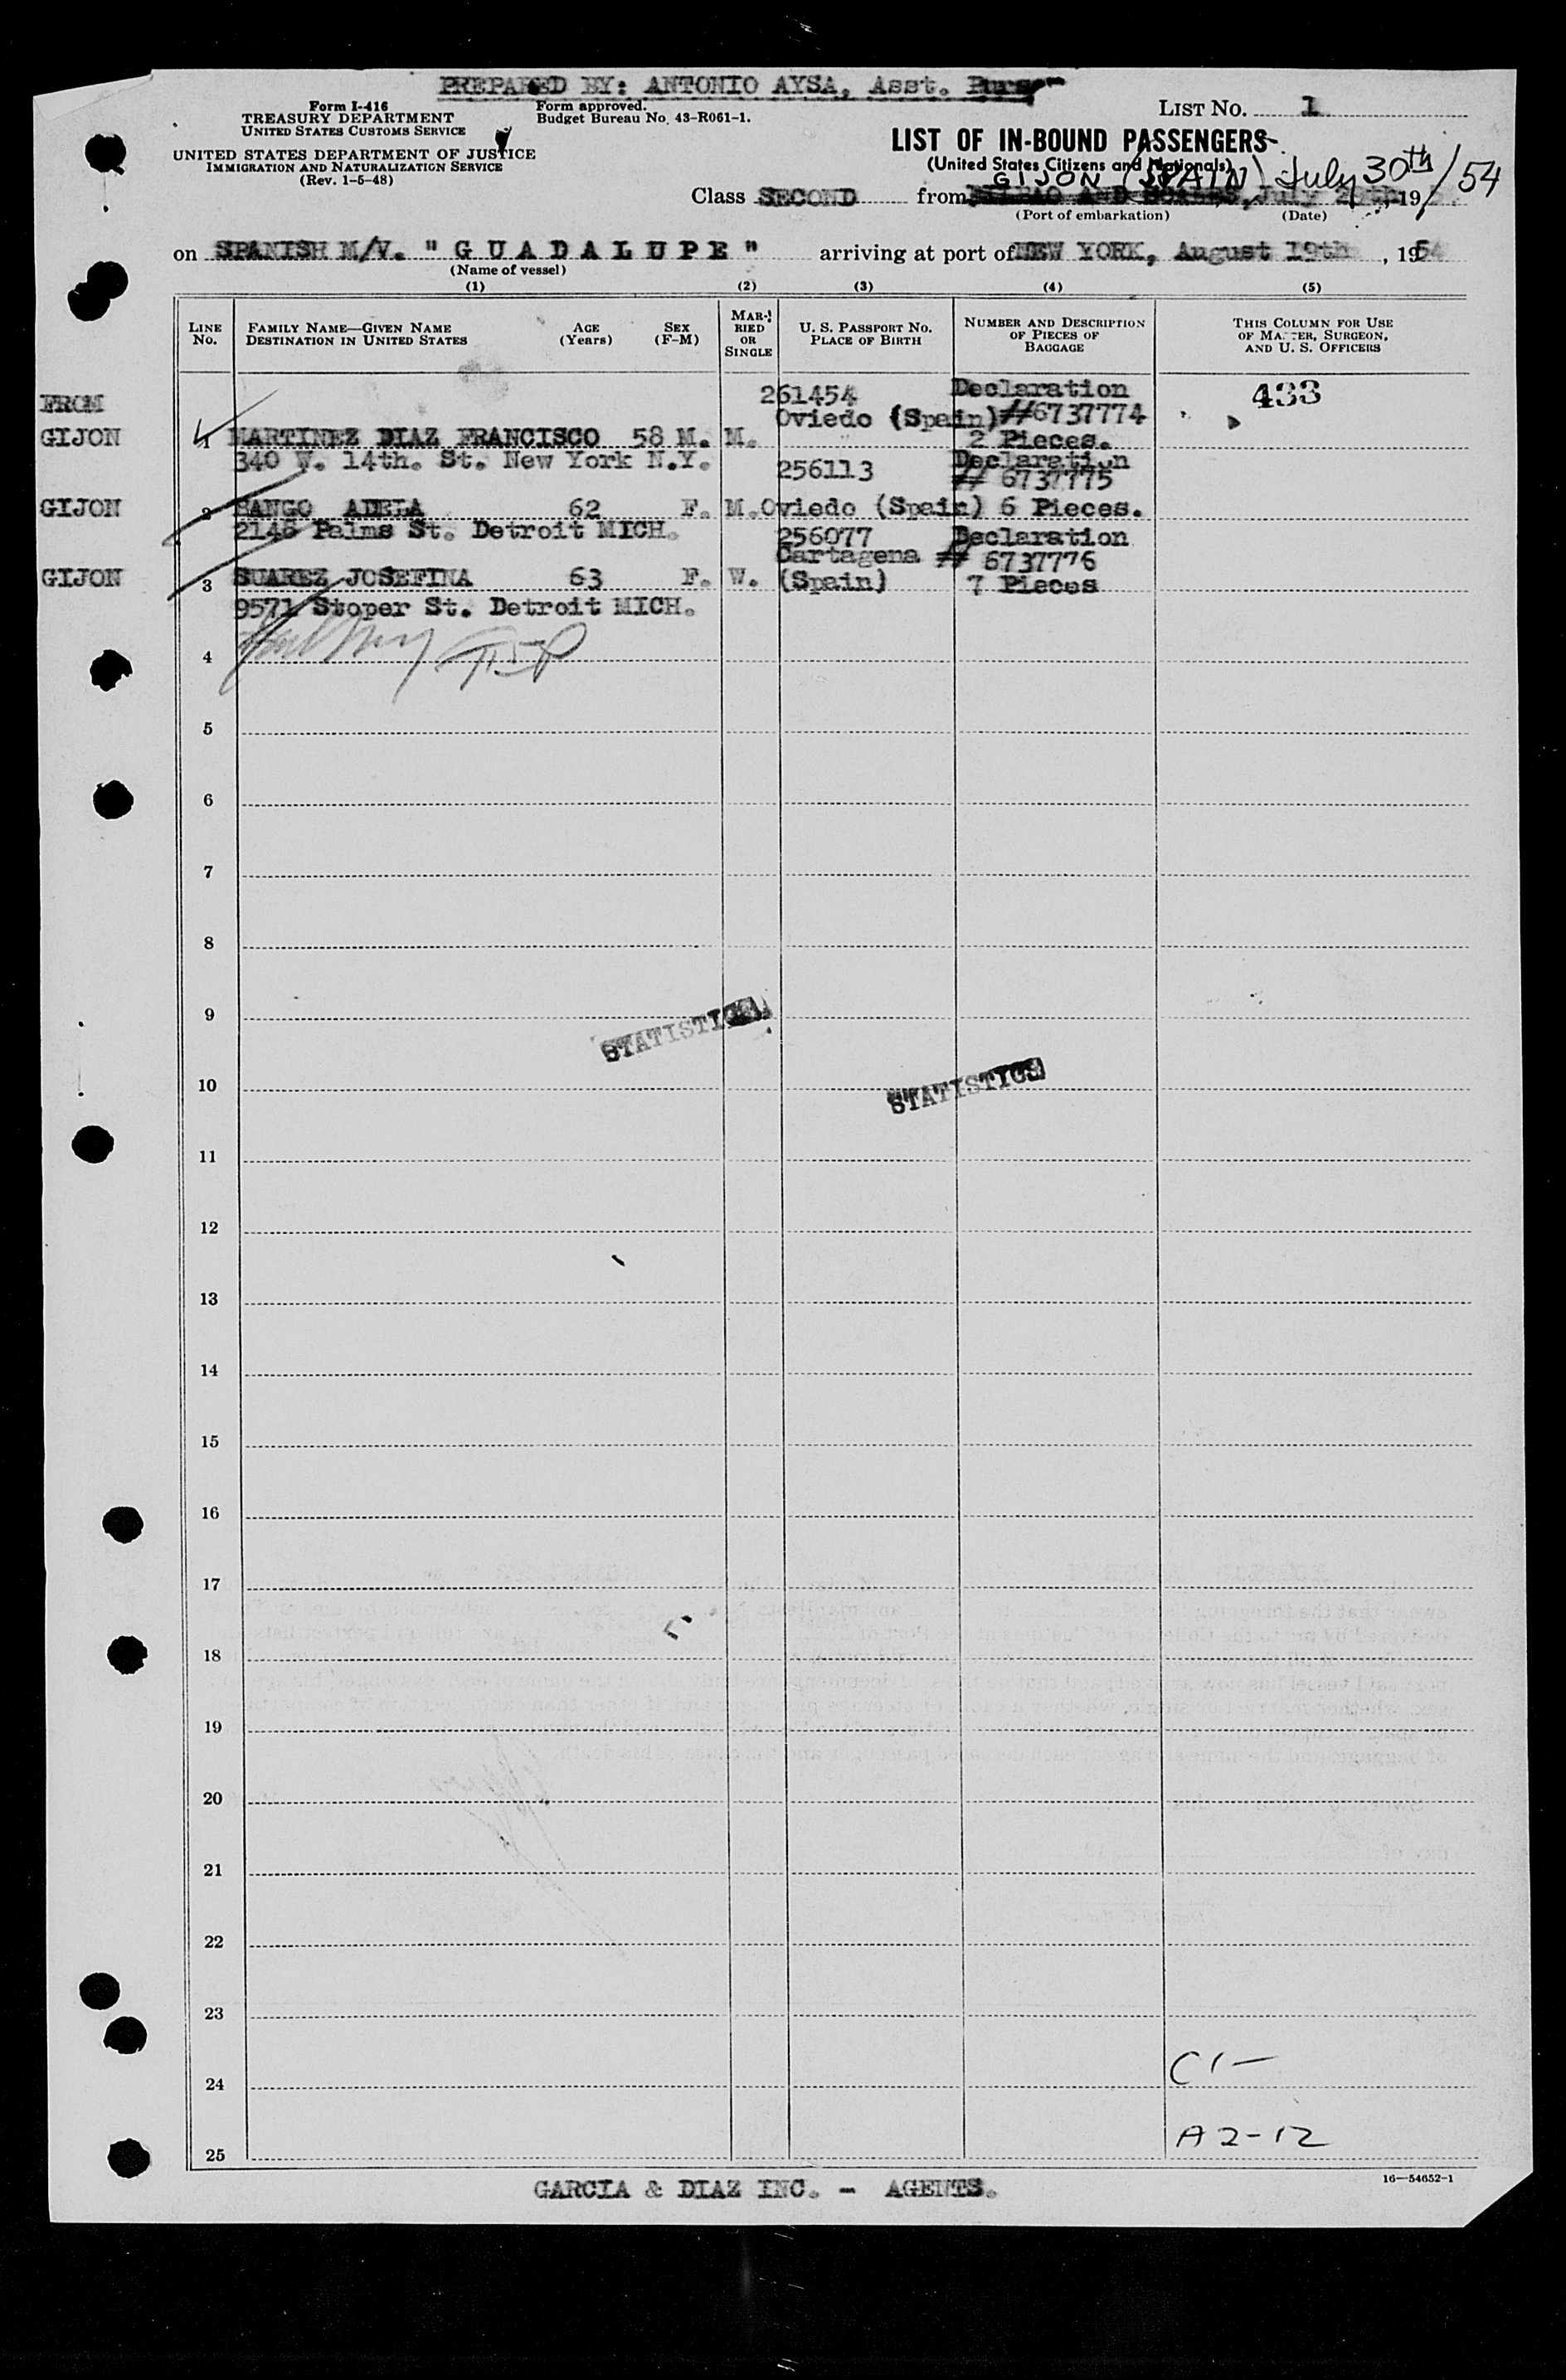 PREPARED BY: ANTONIO AYSA, Asst. Purser
Form I-416
TREASURY DEPARTMENT
UNITED STATES CUSTOMS SERVICE
UNITED STATES DEPARTMENT OF JUSTICE
IMMIGRATION AND NATURALIZATION SERVICE
(Rev. 1-5-48)
Form approved.
Budget Bureau No. 43-R061-1.
LIST No. 1
LIST OF IN-BOUND PASSENGERS
(United States Citizens and Nationals)
GIJON (SPAIN) July 30th/54
Class SECOND from BILBAO AND July 19
(Port of embarkation) (Date)
on SPANISH M/V. "GUADALUPE" arriving at port of NEW YORK, August 19th, 1954
(Name of vessel)
(1) (2) (3) (4) (5)
LINE No. FAMILY NAME—GIVEN NAME DESTINATION IN UNITED STATES AGE (Years) SEX (F-M) MARRIED OR SINGLE U. S. PASSPORT No. PLACE OF BIRTH NUMBER AND DESCRIPTION OF PIECES OF BAGGAGE THIS COLUMN FOR USE OF MASTER, SURGEON, AND U. S. OFFICERS
FROM 261454 Declaration 433
Oviedo (Spain) #6737774
GIJON 1 MARTINEZ DIAZ FRANCISCO 58 M. M. 2 Pieces.
340 W. 14th. St. New York N.Y. 256113 Declaration
# 6737775
GIJON 2 ADELA 62 F. M. Oviedo (Spain) 6 Pieces.
2146 Palms St. Detroit MICH. 256077 Declaration
Cartagena # 6737776
GIJON 3 SUAREZ JOSEFINA 63 F. W. (Spain) 7 Pieces
9571 Stoper St. Detroit MICH.
4
5
6
7
8
9
STATISTICS
10
STATISTICS
11
12
13
14
15
16
17
18
19
20
21
22
23
24 C1—
25 A2-12
GARCIA & DIAZ INC. - AGENTS.
16—54652-1